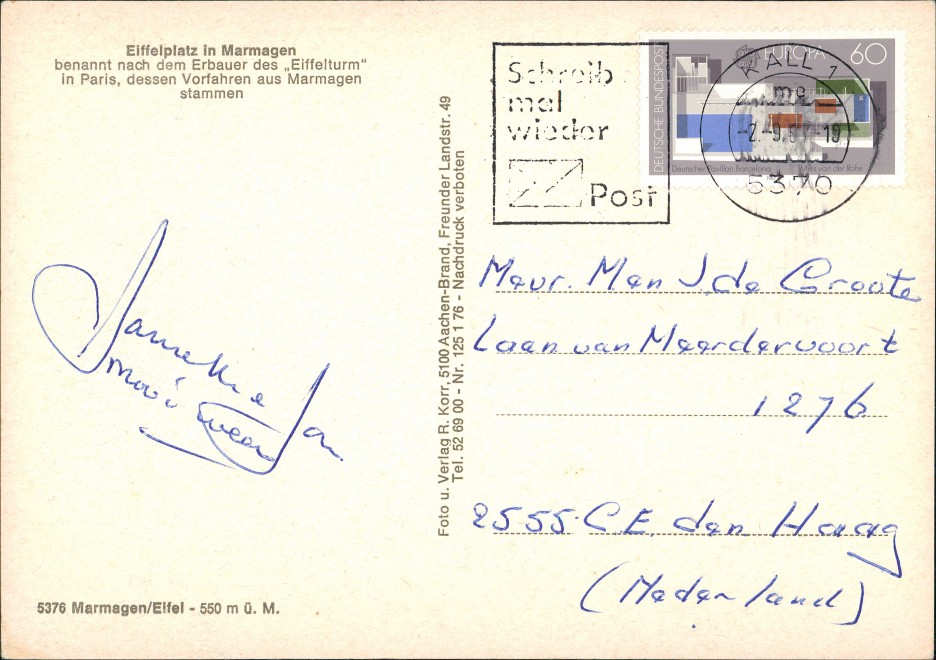 Eiffelplatz in Marmagen
benannt nach dem Erbauer des „Eiffelturm“
in Paris, dessen Vorfahren aus Marmagen
stammen
Schreib
mal
wieder
Post
DEUTSCHE BUNDESPOST
EUROPA 60
Deutscher Pavillon Barcelona Mies van der Rohe
KALL 1
mg
-2.-9.87-19
5370
Foto u. Verlag R. Korr, 5100 Aachen-Brand, Freunder Landstr. 49
Tel. 52 69 00 - Nr. 125 1 76 - Nachdruck verboten
Hanneke Jan
mooi weer
Mevr. Men J. de Groote
Laan van Meerdervoort
1276
2555 CE den Haag
(Nederland)
5376 Marmagen/Eifel - 550 m ü. M.